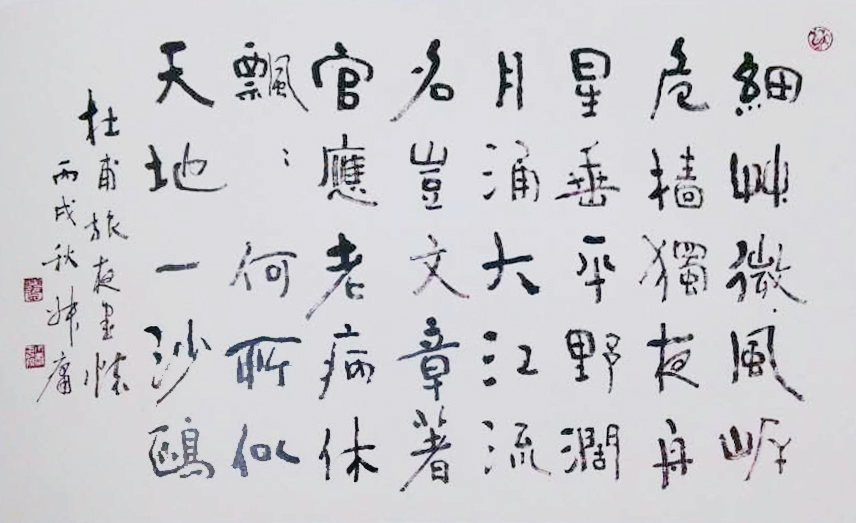 細艸微風岸
危檣獨夜舟
星垂平野濶
月涌大江流
名豈文章著
官應老病休
飄〻何所似
天地一沙鷗
杜甫旅夜書懷
丙戌秋 庸